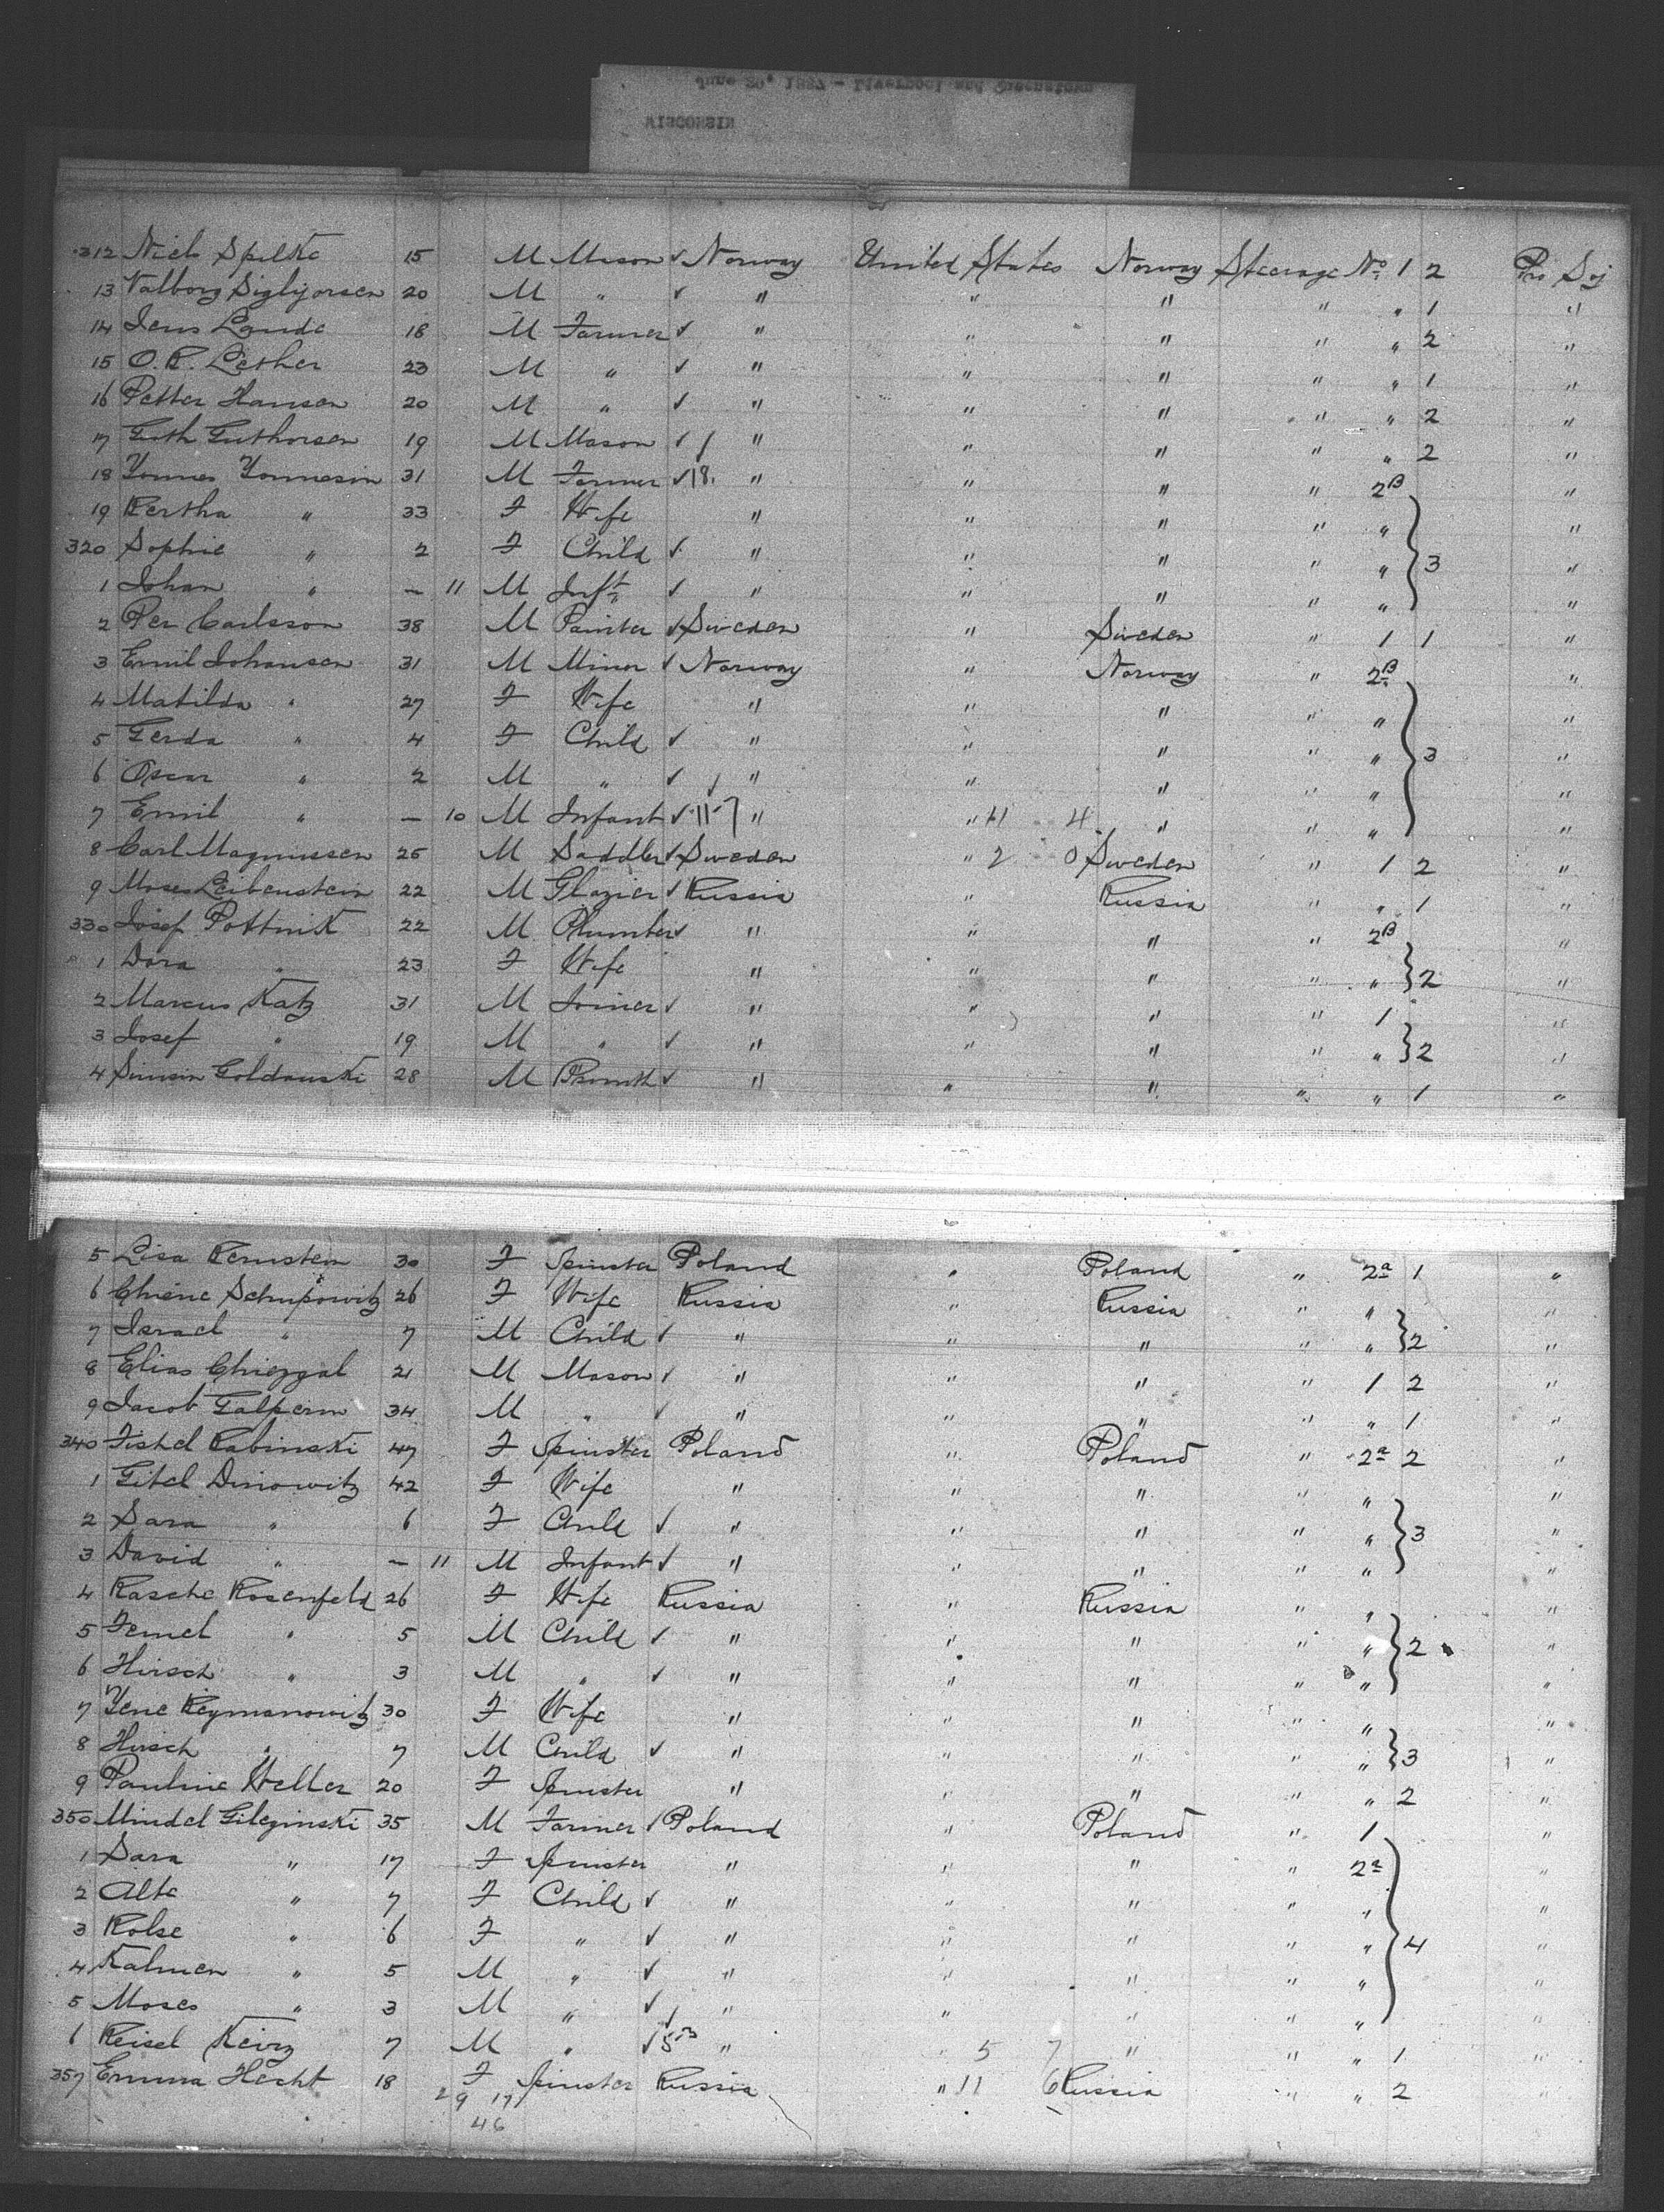 June 20, 1887 - Liverpool and Queenstown
WISCONSIN
312 Niels Spilke 15 M Mason ✓ Norway United States Norway Steerage No 1 2 Pro Soj
13 Valborg Siglijorsen 20 M " ✓ " " " " " 1 "
14 Jens Lande 18 M Farmer ✓ " " " " " 2 "
15 O. R. Lether 23 M " ✓ " " " " " 1 "
16 Petter Hansen 20 M " ✓ " " " " " 2 "
17 Guth Guthorsen 19 M Mason ✓ " " " " " 2 "
18 Yonnes Yonnesin 31 M Farmer ✓ 18. " " " " 2B "
19 Bertha " 33 F Wife " " " " " "
320 Sophie " 2 F Child ✓ " " " " " 3 "
1 Johan " — 11 M Inft ✓ " " " " " "
2 Per Carlsson 38 M Painter ✓ Sweden " Sweden " 1 1 "
3 Emil Johansen 31 M Miner ✓ Norway " Norway " 2B "
4 Matilda " 27 F Wife " " " " " "
5 Gerda " 4 F Child ✓ " " " " " 3 "
6 Oscar " 2 M " ✓ " " " " " "
7 Emil " — 10 M Infant ✓ " " 11 4 " " " "
8 Carl Magnussen 25 M Saddler ✓ Sweden " 2 0 Sweden " 1 2 "
9 Moses Leibenstein 22 M Glazier ✓ Russia " Russia " " 1 "
330 Josef Pottnik 22 M Plumber ✓ " " " " 2B "
1 Dora " 23 F Wife " " " " " 2 "
2 Marcus Katz 31 M Joiner ✓ " " " " 1 "
3 Josef " 19 M " ✓ " " " " " 2 "
4 Simsin Goldanski 28 M ✓ " " " " " 1 "
5 Lisa Bernstein 30 F Spinster Poland " Poland " 2a 1 "
6 Chiene Schupowitz 26 F Wife Russia " Russia " " "
7 Israel " 7 M Child ✓ " " " " " 2 "
8 Elias Chiezgal 21 M Mason ✓ " " " " 1 2 "
9 Jacob Galperin 34 M " ✓ " " " " " 1 "
340 Fishel Rabinski 47 F Spinster Poland " Poland " 2a 2 "
1 Gitel Dinowitz 42 F Wife " " " " " "
2 Sara " 6 F Child ✓ " " " " " 3 "
3 David " — 11 M Infant ✓ " " " " " "
4 Rasche Rosenfeld 26 F Wife Russia " Russia " " "
5 Femel " 5 M Child ✓ " " " " " 2 "
6 Hirsch " 3 M " ✓ " " " " " "
7 Yene Reymanowitz 30 F Wife " " " " " "
8 Hirsch " 7 M Child ✓ " " " " " 3 "
9 Pauline Heller 20 F Spinster " " " " " 2 "
350 Mindel Gileginski 35 M Farmer ✓ Poland " Poland " 1 "
1 Sara " 17 F Spinster " " " " 2a "
2 Alte " 7 F Child ✓ " " " " " "
3 Rolse " 6 F " ✓ " " " " " 4 "
4 Kalmen " 5 M " ✓ " " " " " "
5 Moses " 3 M " ✓ " " " " " "
6 Reisel Keirz 7 M " ✓ " " 5 7 " " " 1 "
357 Emma Hecht 18 F Spinster Russia " 11 6 Russia " " 2 "
29 17
46